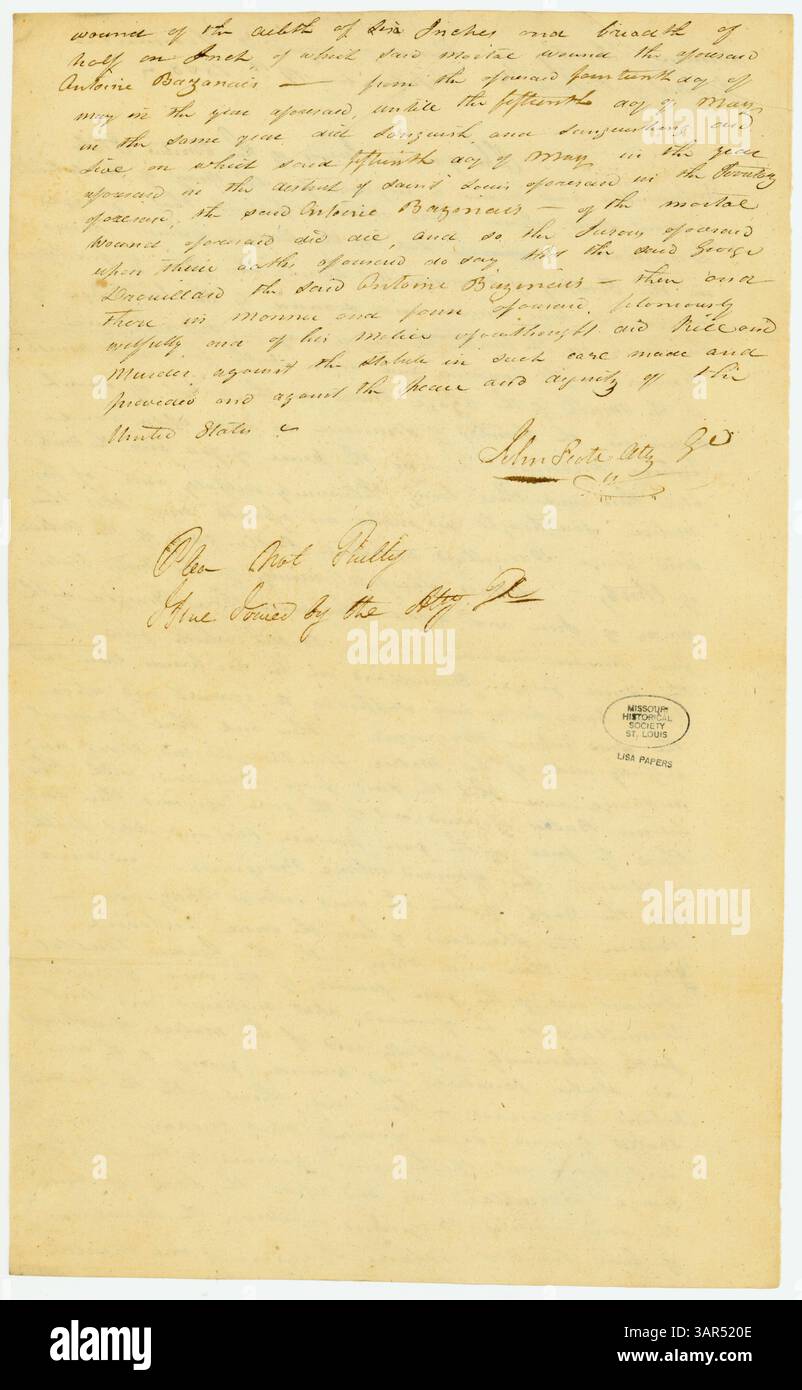 wound of the debth of six Inches and breadth of
half an Inch, of which said mortal wound the aforesaid
Antoine Bazanais — from the aforesaid fourteenth day of
may in the year aforesaid, untill the fifteenth day of May
in the same year did languish, and languishing did
live on which said fifteenth day of May in the year
aforesaid in the district of saint Louis aforesaid in the Territory
aforesaid, the said Antoine Bazinais — of the mortal
wound aforesaid did die, and so the Jurors aforesaid
upon their oaths aforesaid do say, that the said George
Drouillard the said Antoine Bazinais — then and
there in manner and form aforesaid, feloniously
wilfully and of his malice aforethought did Kill and
Murder, against the statute in such case made and
provided and against the peace and dignity of the
United States
John Scott Atty Gl
Plea Not Guilty
Issue Joined by the Atty. Gl
MISSOURI
HISTORICAL
SOCIETY
ST. LOUIS
LISA PAPERS
a
alamy
alamy
a
a
alamy
a
a
a
alamy
a
a
a
a
alamy
Image ID: 3AR520E
www.alamy.com